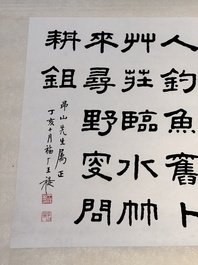 人釣魚舊卜
艸莊臨水竹
來尋野叟問
耕鉏
山先生屬正
丁亥十月福厂王禔